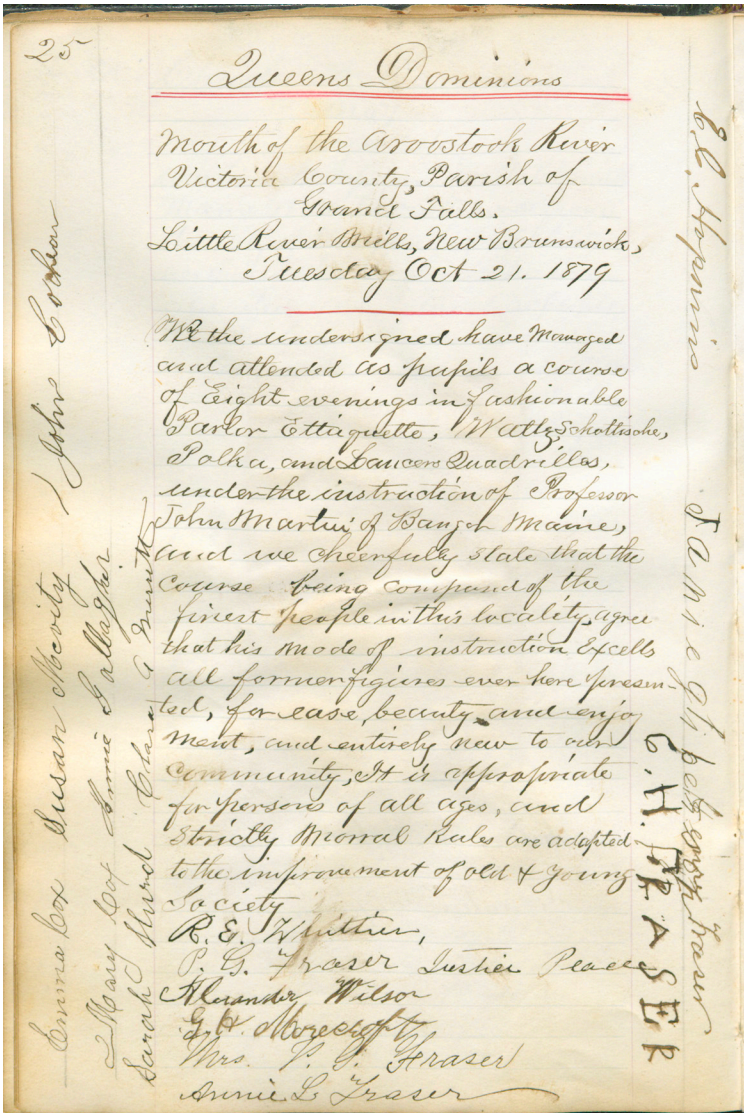 25
Queens Dominions
Mouth of the Aroostook River
Victoria County, Parish of
Grand Falls.
Little River Mills, New Brunswick,
Tuesday Oct 21. 1879
We the undersigned have Managed
and attended as pupils a course
of Eight evenings in fashionable
Parlor Ettiquette, Waltz, Schottische,
Polka, and Lancers Quadrilles,
under the instruction of Professor
John Martin of Bangor Maine,
and we cheerfully state that the
course being composed of the
finest people in this locality, agree
that his mode of instruction Excells
all former figures ever here presen-
ted, for ease, beauty and enjoy
ment, and entirely new to our
community, It is appropriate
for persons of all ages, and
Strictly Morral Rules are adapted
to the improvement of old & young
Society
R. E. Whittier,
P. G. Fraser Justice Peace
Alexander Wilson
G. H. Morecroft
Mrs. P. G. Fraser
Annie L. Fraser
Emma Cox Susan Mcvity John Cochran
Mary Cox Annie Gallagher
Sarah Hurd Clara A Merritt
E. C.
Fraser
G. H. FRASER